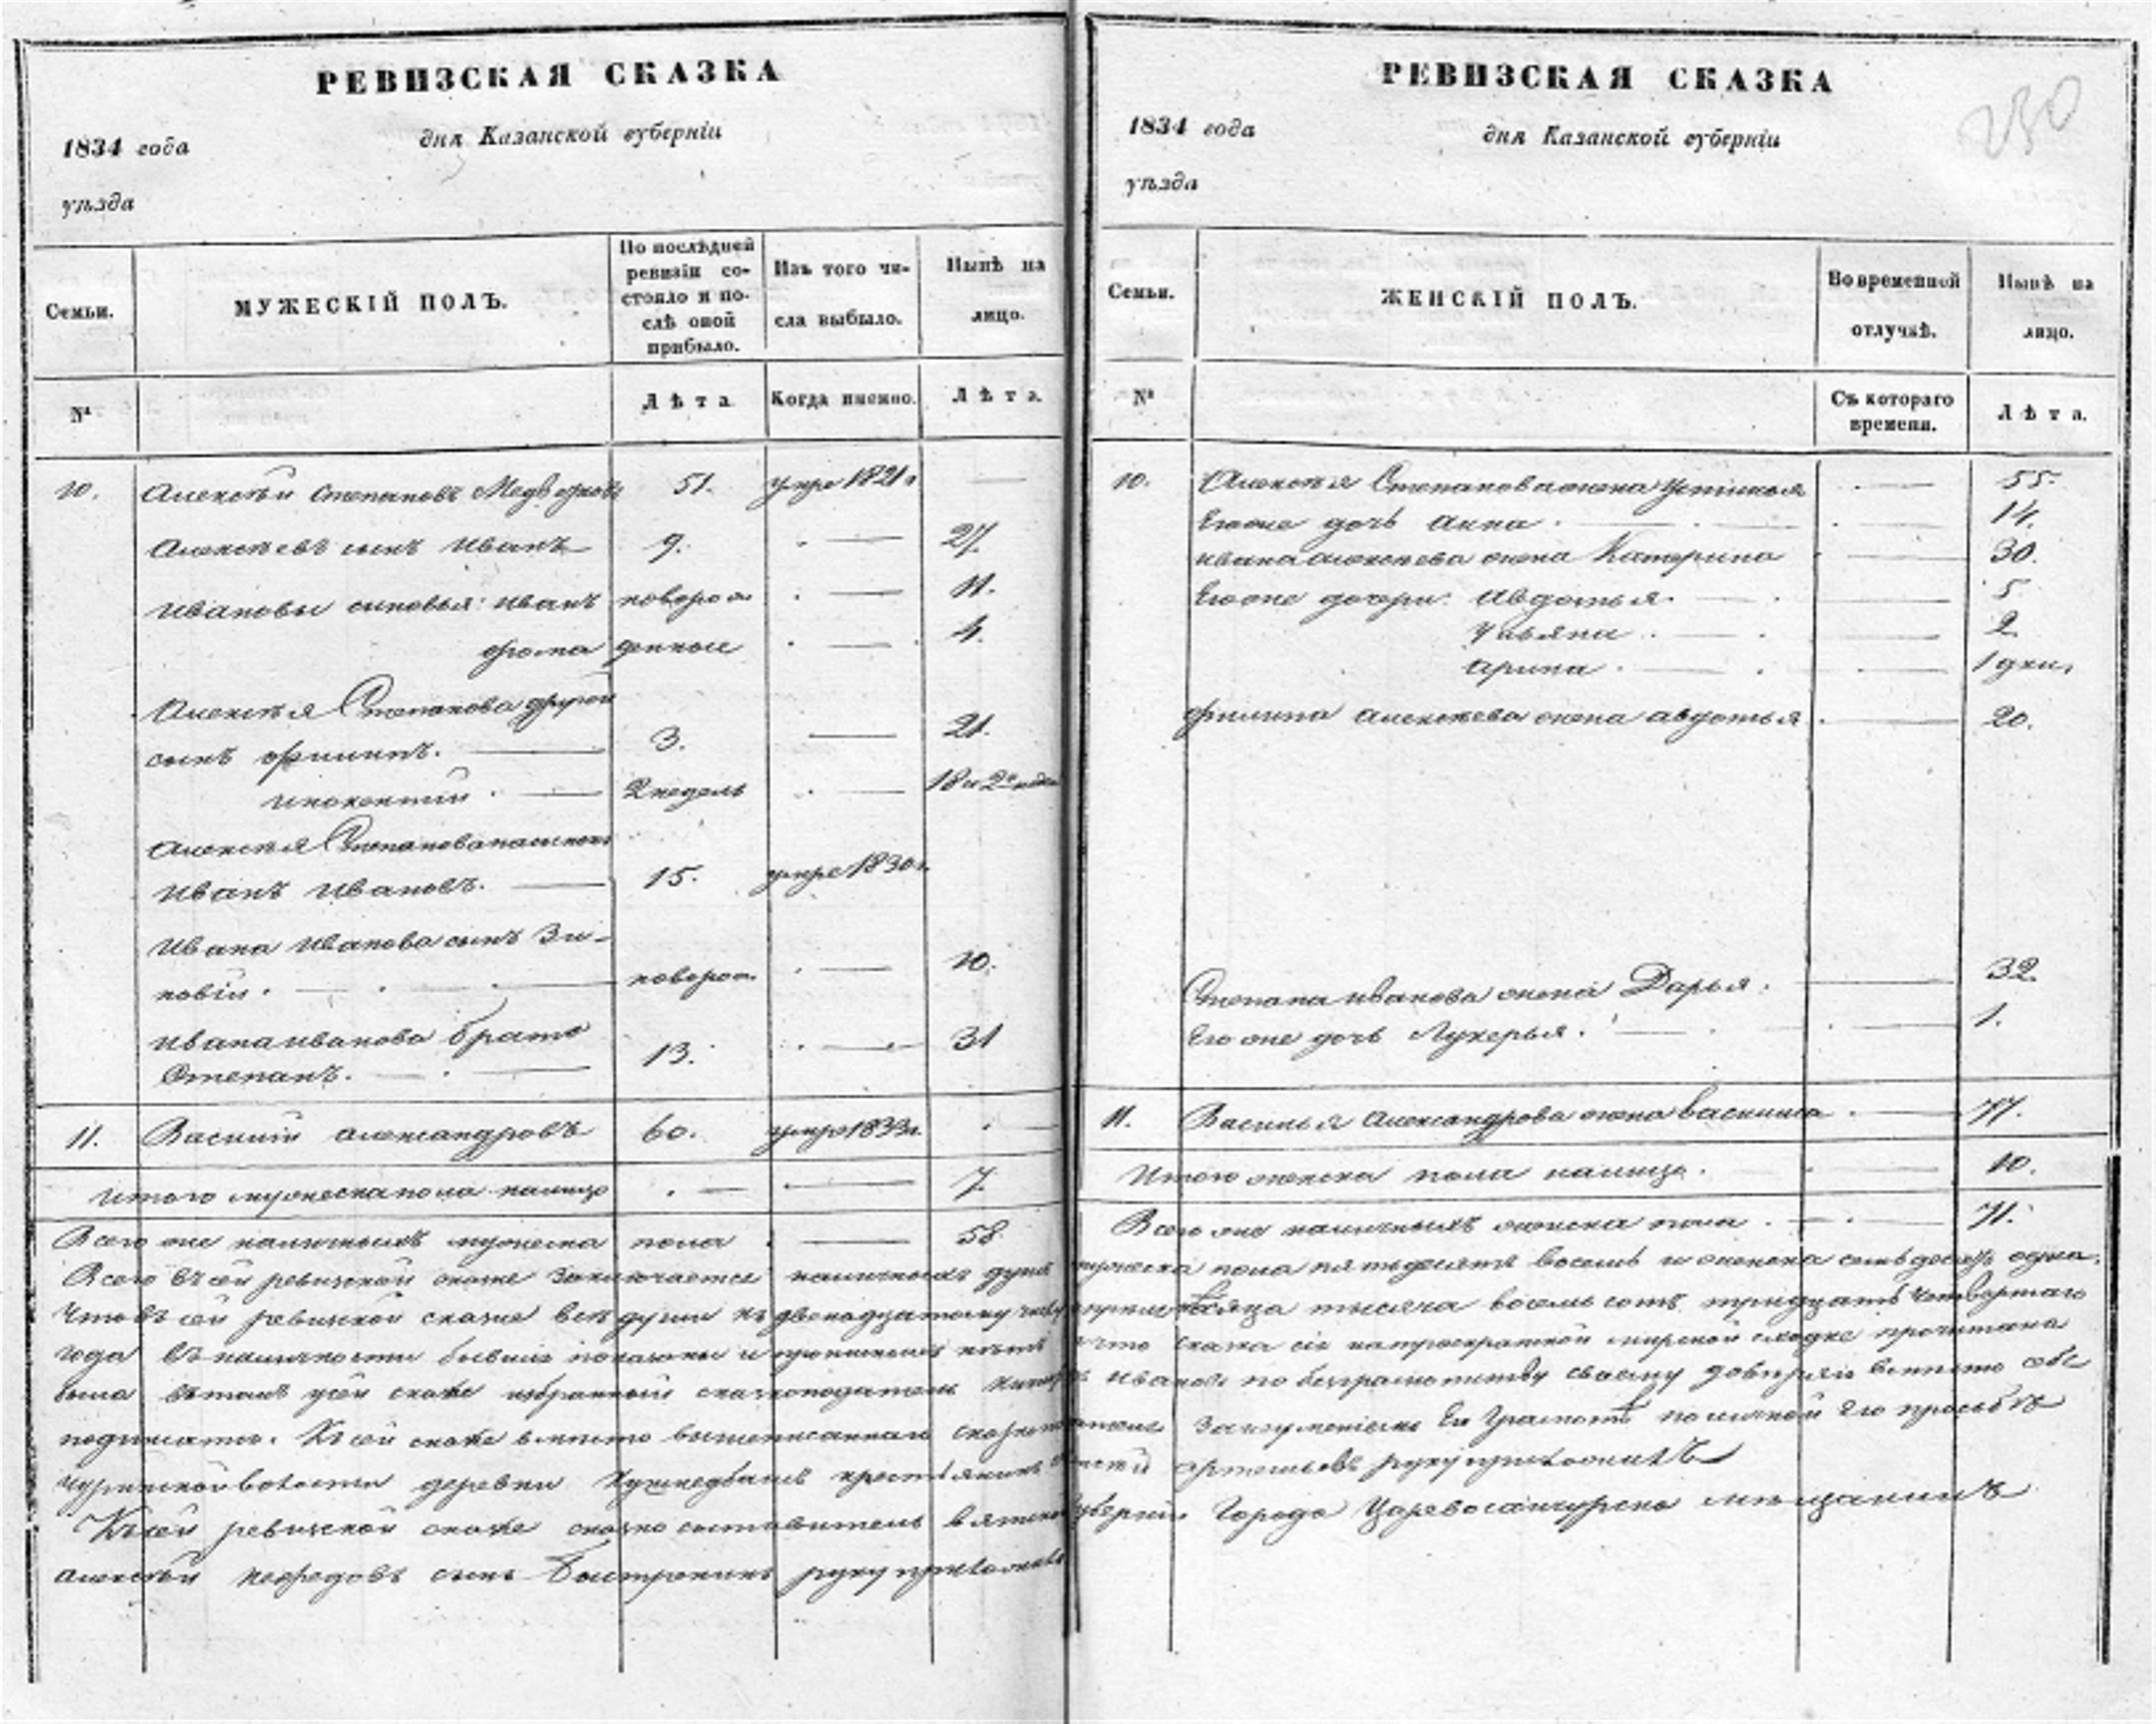 РЕВИЗСКАЯ СКАЗКА
1834 года дня Казанской губерніи
уѣзда
Семьи.
МУЖЕСКІЙ ПОЛЪ.
По послѣдней ревизіи со-
стояло и по-
слѣ оной
прибыло.
Изъ того чи-
сла выбыло.
Нынѣ на
лицо.
№
Лѣта
Когда именно.
Лѣта.
10. Алексѣй Степановъ 51. умре 1821 —
Алексѣевъ сынъ Иванъ 9. — 27.
Ивановы сыновья: Иванъ новорож — 11.
Фома денные — 4.
Алексѣя Степанова другой
сынъ Филиппъ. — 3. — 21.
Инокентий — 2 недель — 18 и 2
Алексѣя Степанова пасынокъ
Иванъ Ивановъ. — 15. умре 1830 г.
Ивана Иванова сынъ Зи-
новій. — новорож. — 10.
Ивана Иванова братъ
Степанъ. — 13. — 31
11. Василій Александровъ 60. умре 1833 г. —
Итого мужеска пола налицо — 7.
Всего же наличныхъ мужеска пола — 58.
РЕВИЗСКАЯ СКАЗКА
230
1834 года дня Казанской губерніи
уѣзда
Семьи.
ЖЕНСКІЙ ПОЛЪ.
Во временной
отлучкѣ.
Нынѣ на
лицо.
№
Съ котораго
времени.
Лѣта.
10. Алексѣя Степанова жена Устинья — 55.
Его же дочь Анна. — 14.
Ивана Алексѣева жена Катерина — 30.
Его же дочери: Авдотья. — 5
Ульяна. — 2
Арина. — 1 дни.
Филипа Алексѣева жена Авдотья — 20.
Степана Иванова жена Дарья. — 32.
Его же дочь Лукерья. — 1.
11. Василья Александрова жена Василиса — 77.
Итого женска пола налицо. — 10.
Всего же наличныхъ женска пола. — 71.
Всего въ сей ревизской сказке заключается наличныхъ душъ мужеска пола пятьдесятъ восемь и женска семьдесятъ одна.
Что въ сей ревизской сказке все души къ двенадцатому числу месяца тысяча восемь сотъ тридцать четвертаго
года въ наличности бывшие показаны и что сказка сія на троекратной мирской сходке прочитана
была въ томъ къ сей сказке избранный сказкоподатель Ивановъ по безграмотству своему доверяю вместо себя
подписать. Къ сей сказке вместо вышеписаннаго неумениемъ Ему Грамоте по личной его прозьбе
волости деревни крестьянинъ Артемьевъ руку приложилъ
Къ сей ревизской сказке сказкосоставитель Вятской Губерніи Города Царевосанчурска мещанинъ
Алексѣй сынъ руку приложилъ